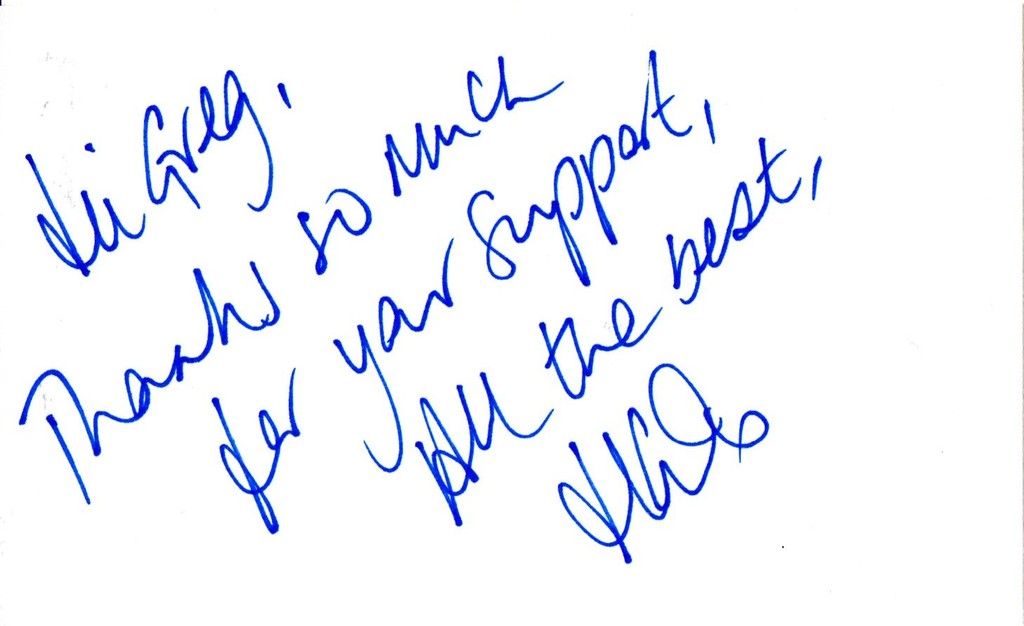 Hi Greg,
Thanks so much
for your support,
All the best,